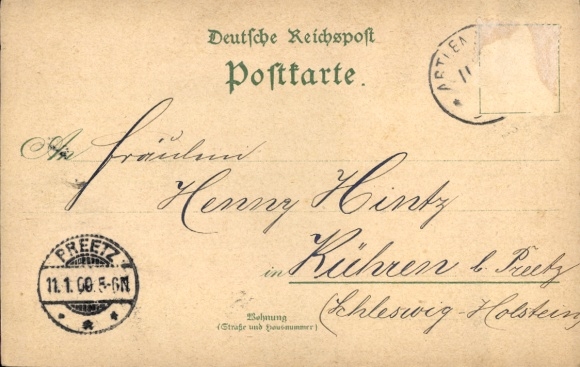 Deutsche Reichspost
Postkarte.
11
An Fräulein
Henny Hintz
in Kühren b. Preetz
(Schleswig-Holstein)
PREETZ
11.1.00.5-6N
Wohnung
(Straße und Hausnummer)